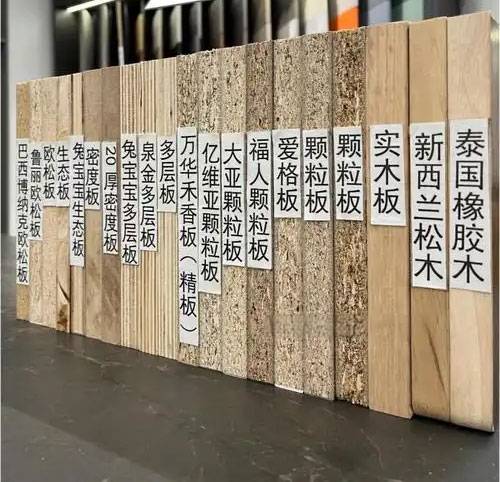 巴西博纳克欧松板
鲁丽欧松板
欧松板
生态板
兔宝宝生态板
密度板
20厚密度板
兔宝宝多层板
泉金多层板
多层板
万华禾香板（精板）
亿维亚颗粒板
大亚颗粒板
福人颗粒板
爱格板
颗粒板
颗粒板
实木板
新西兰松木
泰国橡胶木